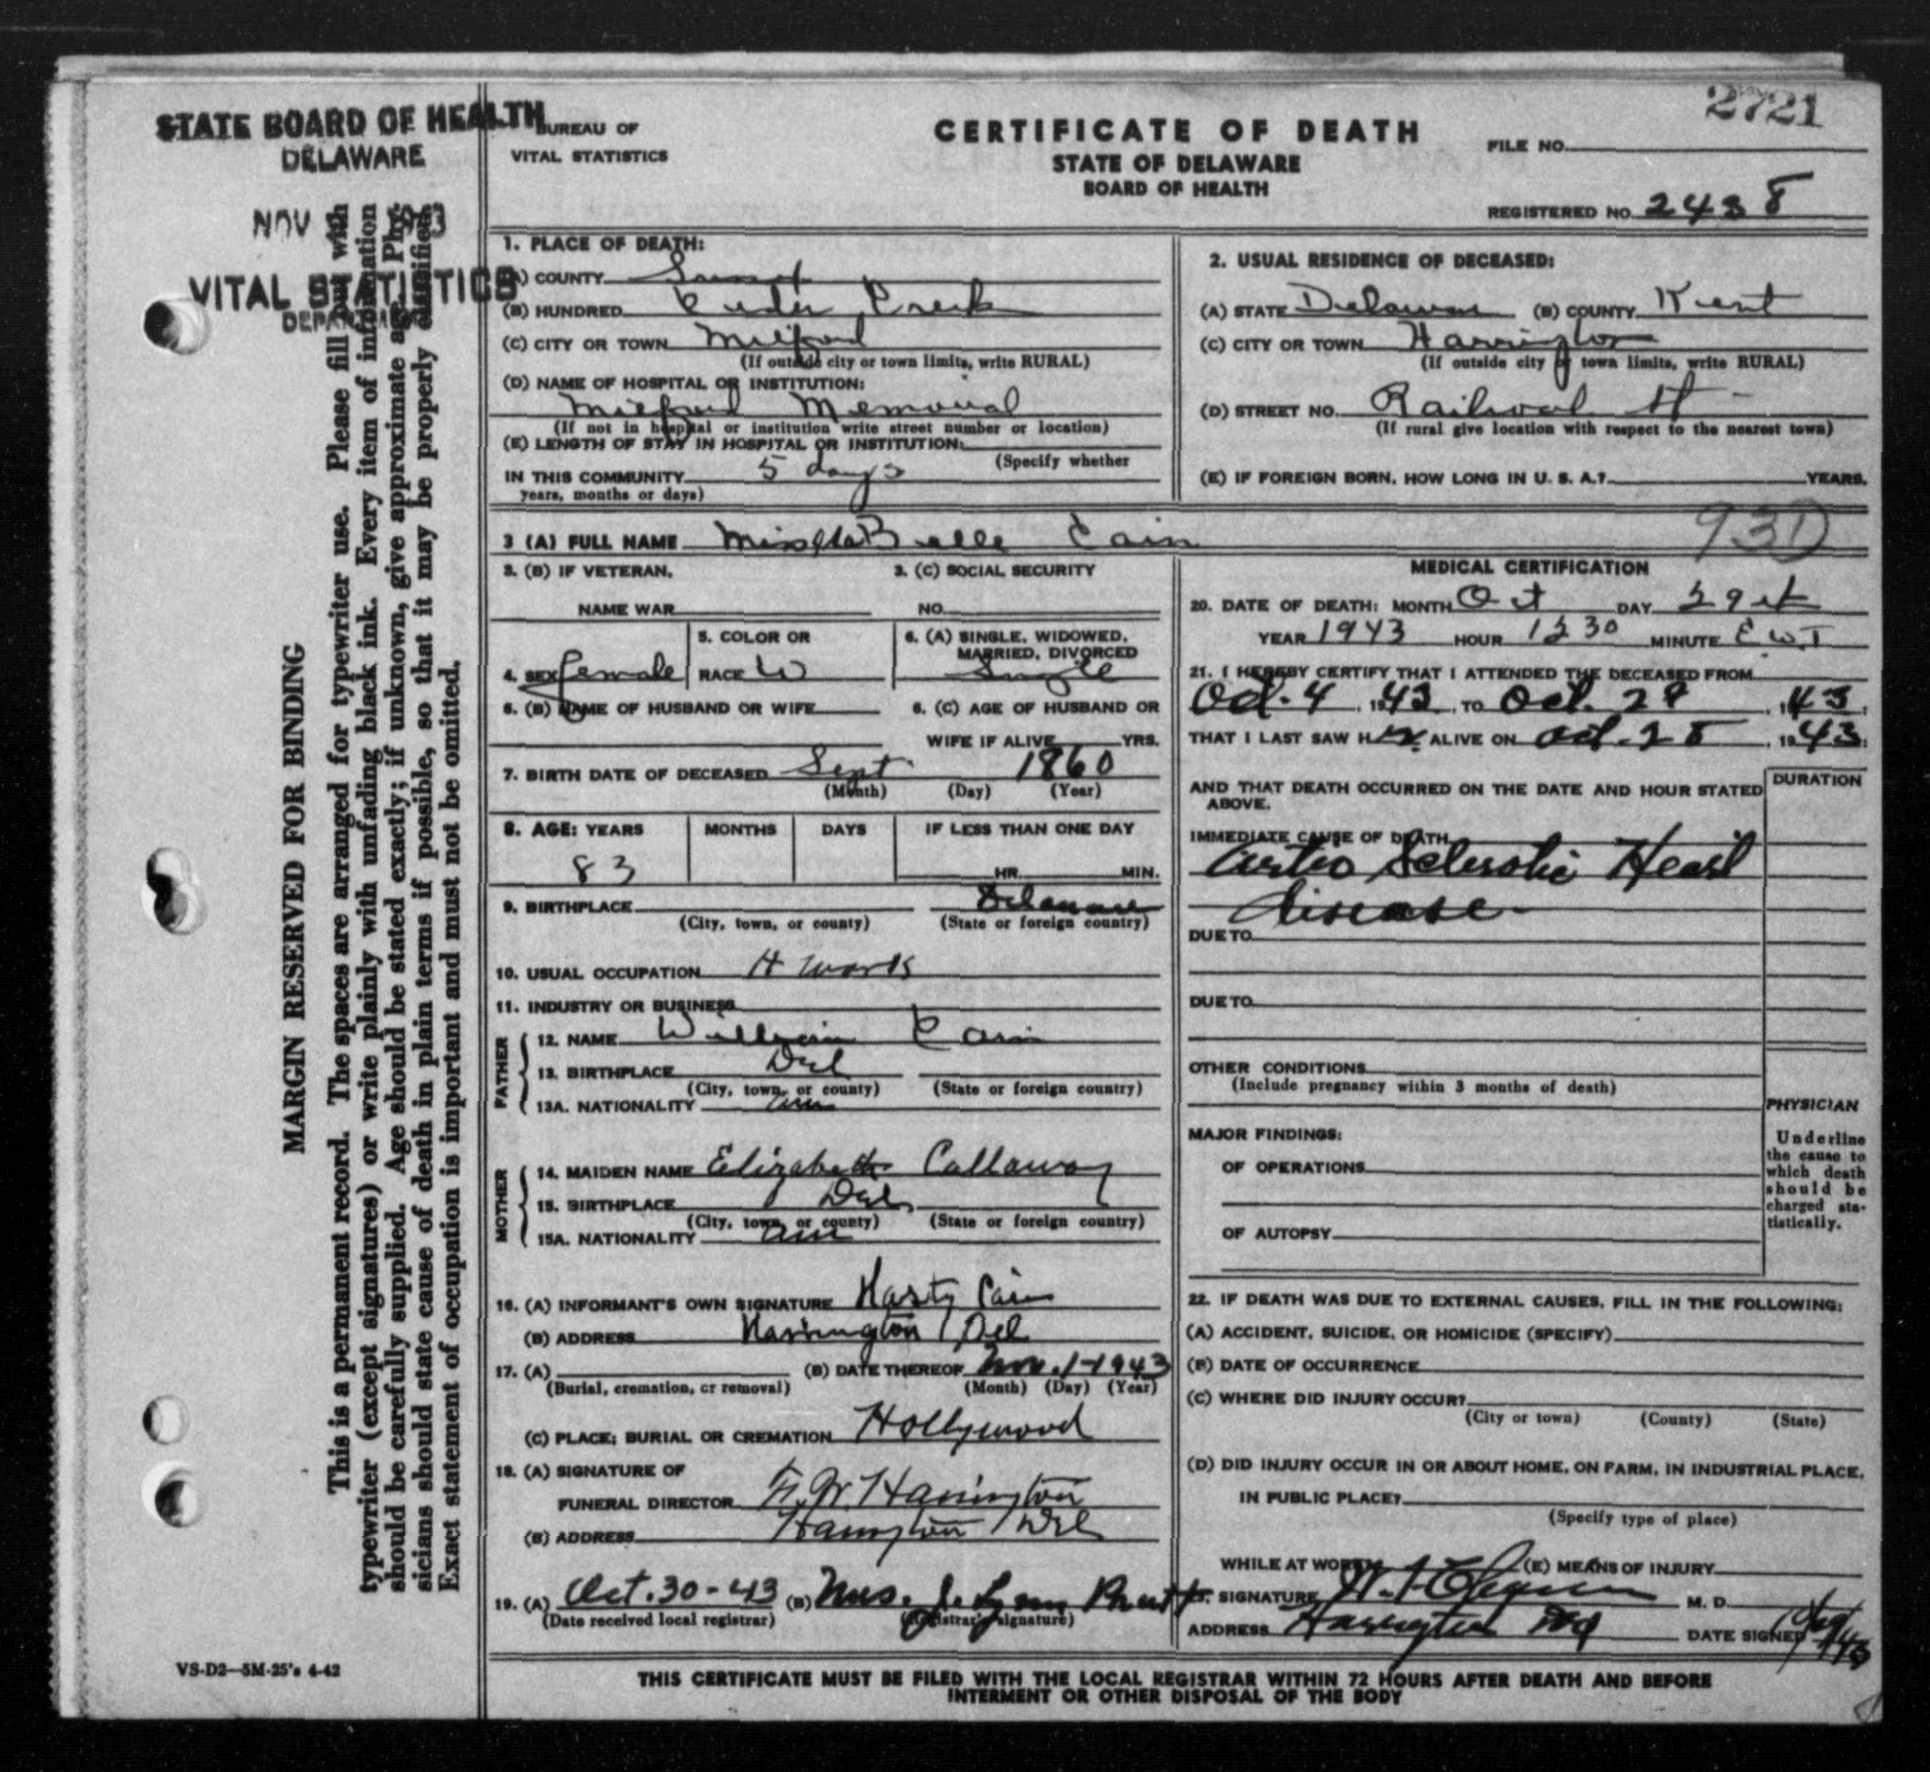 2721
STATE BOARD OF HEALTH
DELAWARE
NOV
VITAL STATISTICS
DEPARTMENT
BUREAU OF
VITAL STATISTICS
CERTIFICATE OF DEATH
STATE OF DELAWARE
BOARD OF HEALTH
FILE NO.
REGISTERED NO. 2438
MARGIN RESERVED FOR BINDING
This is a permanent record. The spaces are arranged for typewriter use. Please fill out with
typewriter (except signatures) or write plainly with unfading black ink. Every item of information
should be carefully supplied. Age should be stated exactly; if unknown, give approximate age. Phy-
sicians should state cause of death in plain terms if possible, so that it may be properly classified.
Exact statement of occupation is important and must not be omitted.
VS-D2—5M-25's 4-42
1. PLACE OF DEATH:
(A) COUNTY Sussex
(B) HUNDRED Cedar Creek
(C) CITY OR TOWN Milford
(If outside city or town limits, write RURAL)
(D) NAME OF HOSPITAL OR INSTITUTION:
Milford Memorial
(If not in hospital or institution write street number or location)
(E) LENGTH OF STAY IN HOSPITAL OR INSTITUTION:
(Specify whether
IN THIS COMMUNITY 5 days
years, months or days)
2. USUAL RESIDENCE OF DECEASED:
(A) STATE Delaware (B) COUNTY Kent
(C) CITY OR TOWN Harrington
(If outside city or town limits, write RURAL)
(D) STREET NO. Railroad St
(If rural give location with respect to the nearest town)
(E) IF FOREIGN BORN, HOW LONG IN U. S. A.? YEARS.
3 (A) FULL NAME Belle Cain
93D
3. (B) IF VETERAN, 3. (C) SOCIAL SECURITY
NAME WAR NO.
4. SEX female
5. COLOR OR
RACE W
6. (A) SINGLE, WIDOWED,
MARRIED, DIVORCED
Single
6. (B) NAME OF HUSBAND OR WIFE 6. (C) AGE OF HUSBAND OR
WIFE IF ALIVE YRS.
7. BIRTH DATE OF DECEASED Sept 1860
(Month) (Day) (Year)
8. AGE: YEARS MONTHS DAYS IF LESS THAN ONE DAY
83 HR. MIN.
9. BIRTHPLACE Delaware
(City, town, or county) (State or foreign country)
10. USUAL OCCUPATION H work
11. INDUSTRY OR BUSINESS
FATHER
12. NAME William Cain
13. BIRTHPLACE Del
(City, town, or county) (State or foreign country)
13A. NATIONALITY am
MOTHER
14. MAIDEN NAME Elizabeth Callaway
15. BIRTHPLACE Del
(City, town, or county) (State or foreign country)
15A. NATIONALITY am
16. (A) INFORMANT'S OWN SIGNATURE Hasty Cain
(B) ADDRESS Harrington Del
17. (A) (B) DATE THEREOF Nov. 1-1943
(Burial, cremation, or removal) (Month) (Day) (Year)
(C) PLACE; BURIAL OR CREMATION Hollywood
18. (A) SIGNATURE OF
FUNERAL DIRECTOR F. W. Harrington
(B) ADDRESS Harrington Del
19. (A) Oct. 30-43 (B) Mrs. J. Lynn
(Date received local registrar) (Registrar's signature)
MEDICAL CERTIFICATION
20. DATE OF DEATH: MONTH Oct DAY 29
YEAR 1943 HOUR 12 30 MINUTE E W T
21. I HEREBY CERTIFY THAT I ATTENDED THE DECEASED FROM
Oct. 4, 1943, TO Oct. 29, 1943;
THAT I LAST SAW H er ALIVE ON Oct. 28, 1943;
AND THAT DEATH OCCURRED ON THE DATE AND HOUR STATED
ABOVE.
DURATION
IMMEDIATE CAUSE OF DEATH
Arterio Sclerotic Heart
disease
DUE TO
DUE TO
OTHER CONDITIONS
(Include pregnancy within 3 months of death)
MAJOR FINDINGS:
OF OPERATIONS
OF AUTOPSY
PHYSICIAN
Underline
the cause to
which death
should be
charged sta-
tistically.
22. IF DEATH WAS DUE TO EXTERNAL CAUSES, FILL IN THE FOLLOWING:
(A) ACCIDENT, SUICIDE, OR HOMICIDE (SPECIFY)
(B) DATE OF OCCURRENCE
(C) WHERE DID INJURY OCCUR?
(City or town) (County) (State)
(D) DID INJURY OCCUR IN OR ABOUT HOME, ON FARM, IN INDUSTRIAL PLACE,
IN PUBLIC PLACE?
(Specify type of place)
WHILE AT WORK? (E) MEANS OF INJURY
23. SIGNATURE M. D.
ADDRESS Harrington Del DATE SIGNED
THIS CERTIFICATE MUST BE FILED WITH THE LOCAL REGISTRAR WITHIN 72 HOURS AFTER DEATH AND BEFORE
INTERMENT OR OTHER DISPOSAL OF THE BODY